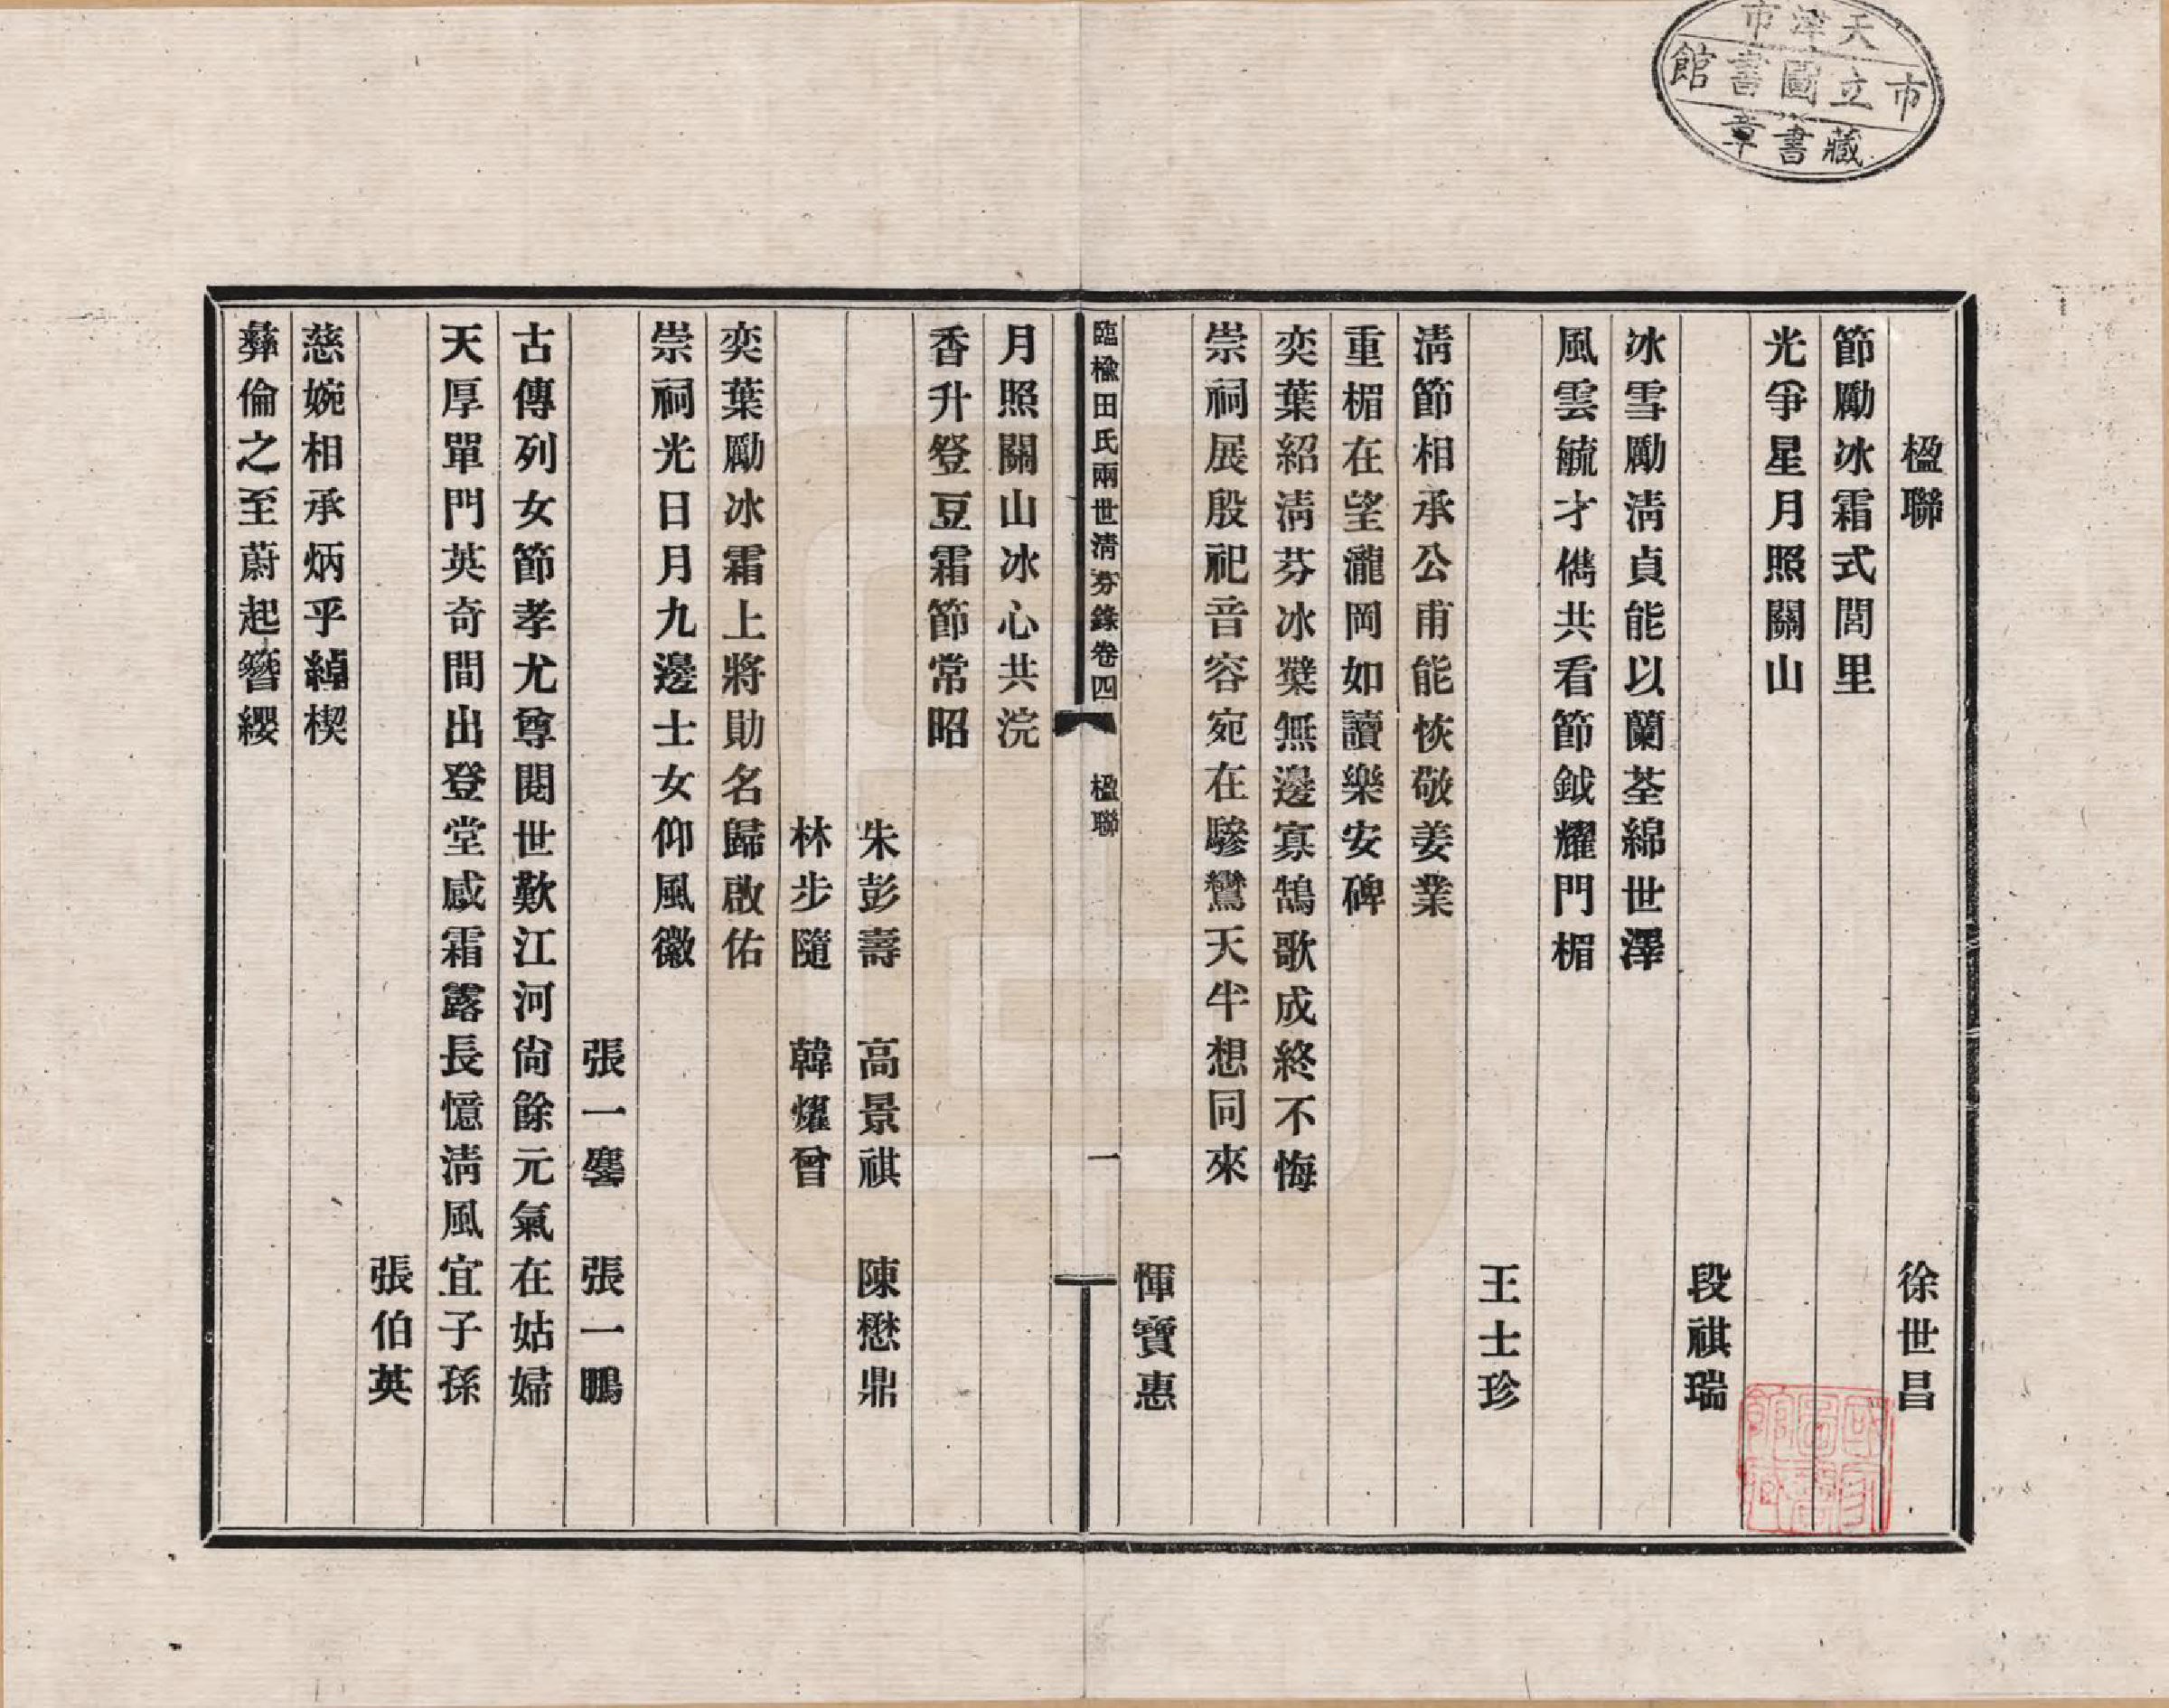 天津市
市立圖書館
藏書章
楹聯　徐世昌
節勵冰霜式閭里
光爭星月照關山
段祺瑞
冰雪勵清貞能以蘭荃綿世澤
風雲毓才儁共看節鉞耀門楣
王士珍
清節相承公甫能恢敬姜業
重楣在望瀧岡如讀樂安碑
奕葉紹清芬冰櫱無邊寡鵠歌成終不悔
崇祠展殷祀音容宛在驂鸞天半想同來
惲寶惠
臨楡田氏兩世清芬錄卷四　楹聯　一
月照關山冰心共浣
香升登豆霜節常昭
朱彭壽　高景祺　陳懋鼎
林步隨　韓燿曾
奕葉勵冰霜上將勛名歸啟佑
崇祠光日月九邊士女仰風徽
張一鏖　張一鵬
古傳列女節孝尤尊閱世歎江河尙餘元氣在姑婦
天厚單門英奇間出登堂感霜露長憶清風宜子孫
張伯英
慈婉相承炳乎綽楔
彝倫之至蔚起簪纓
國家圖書館藏